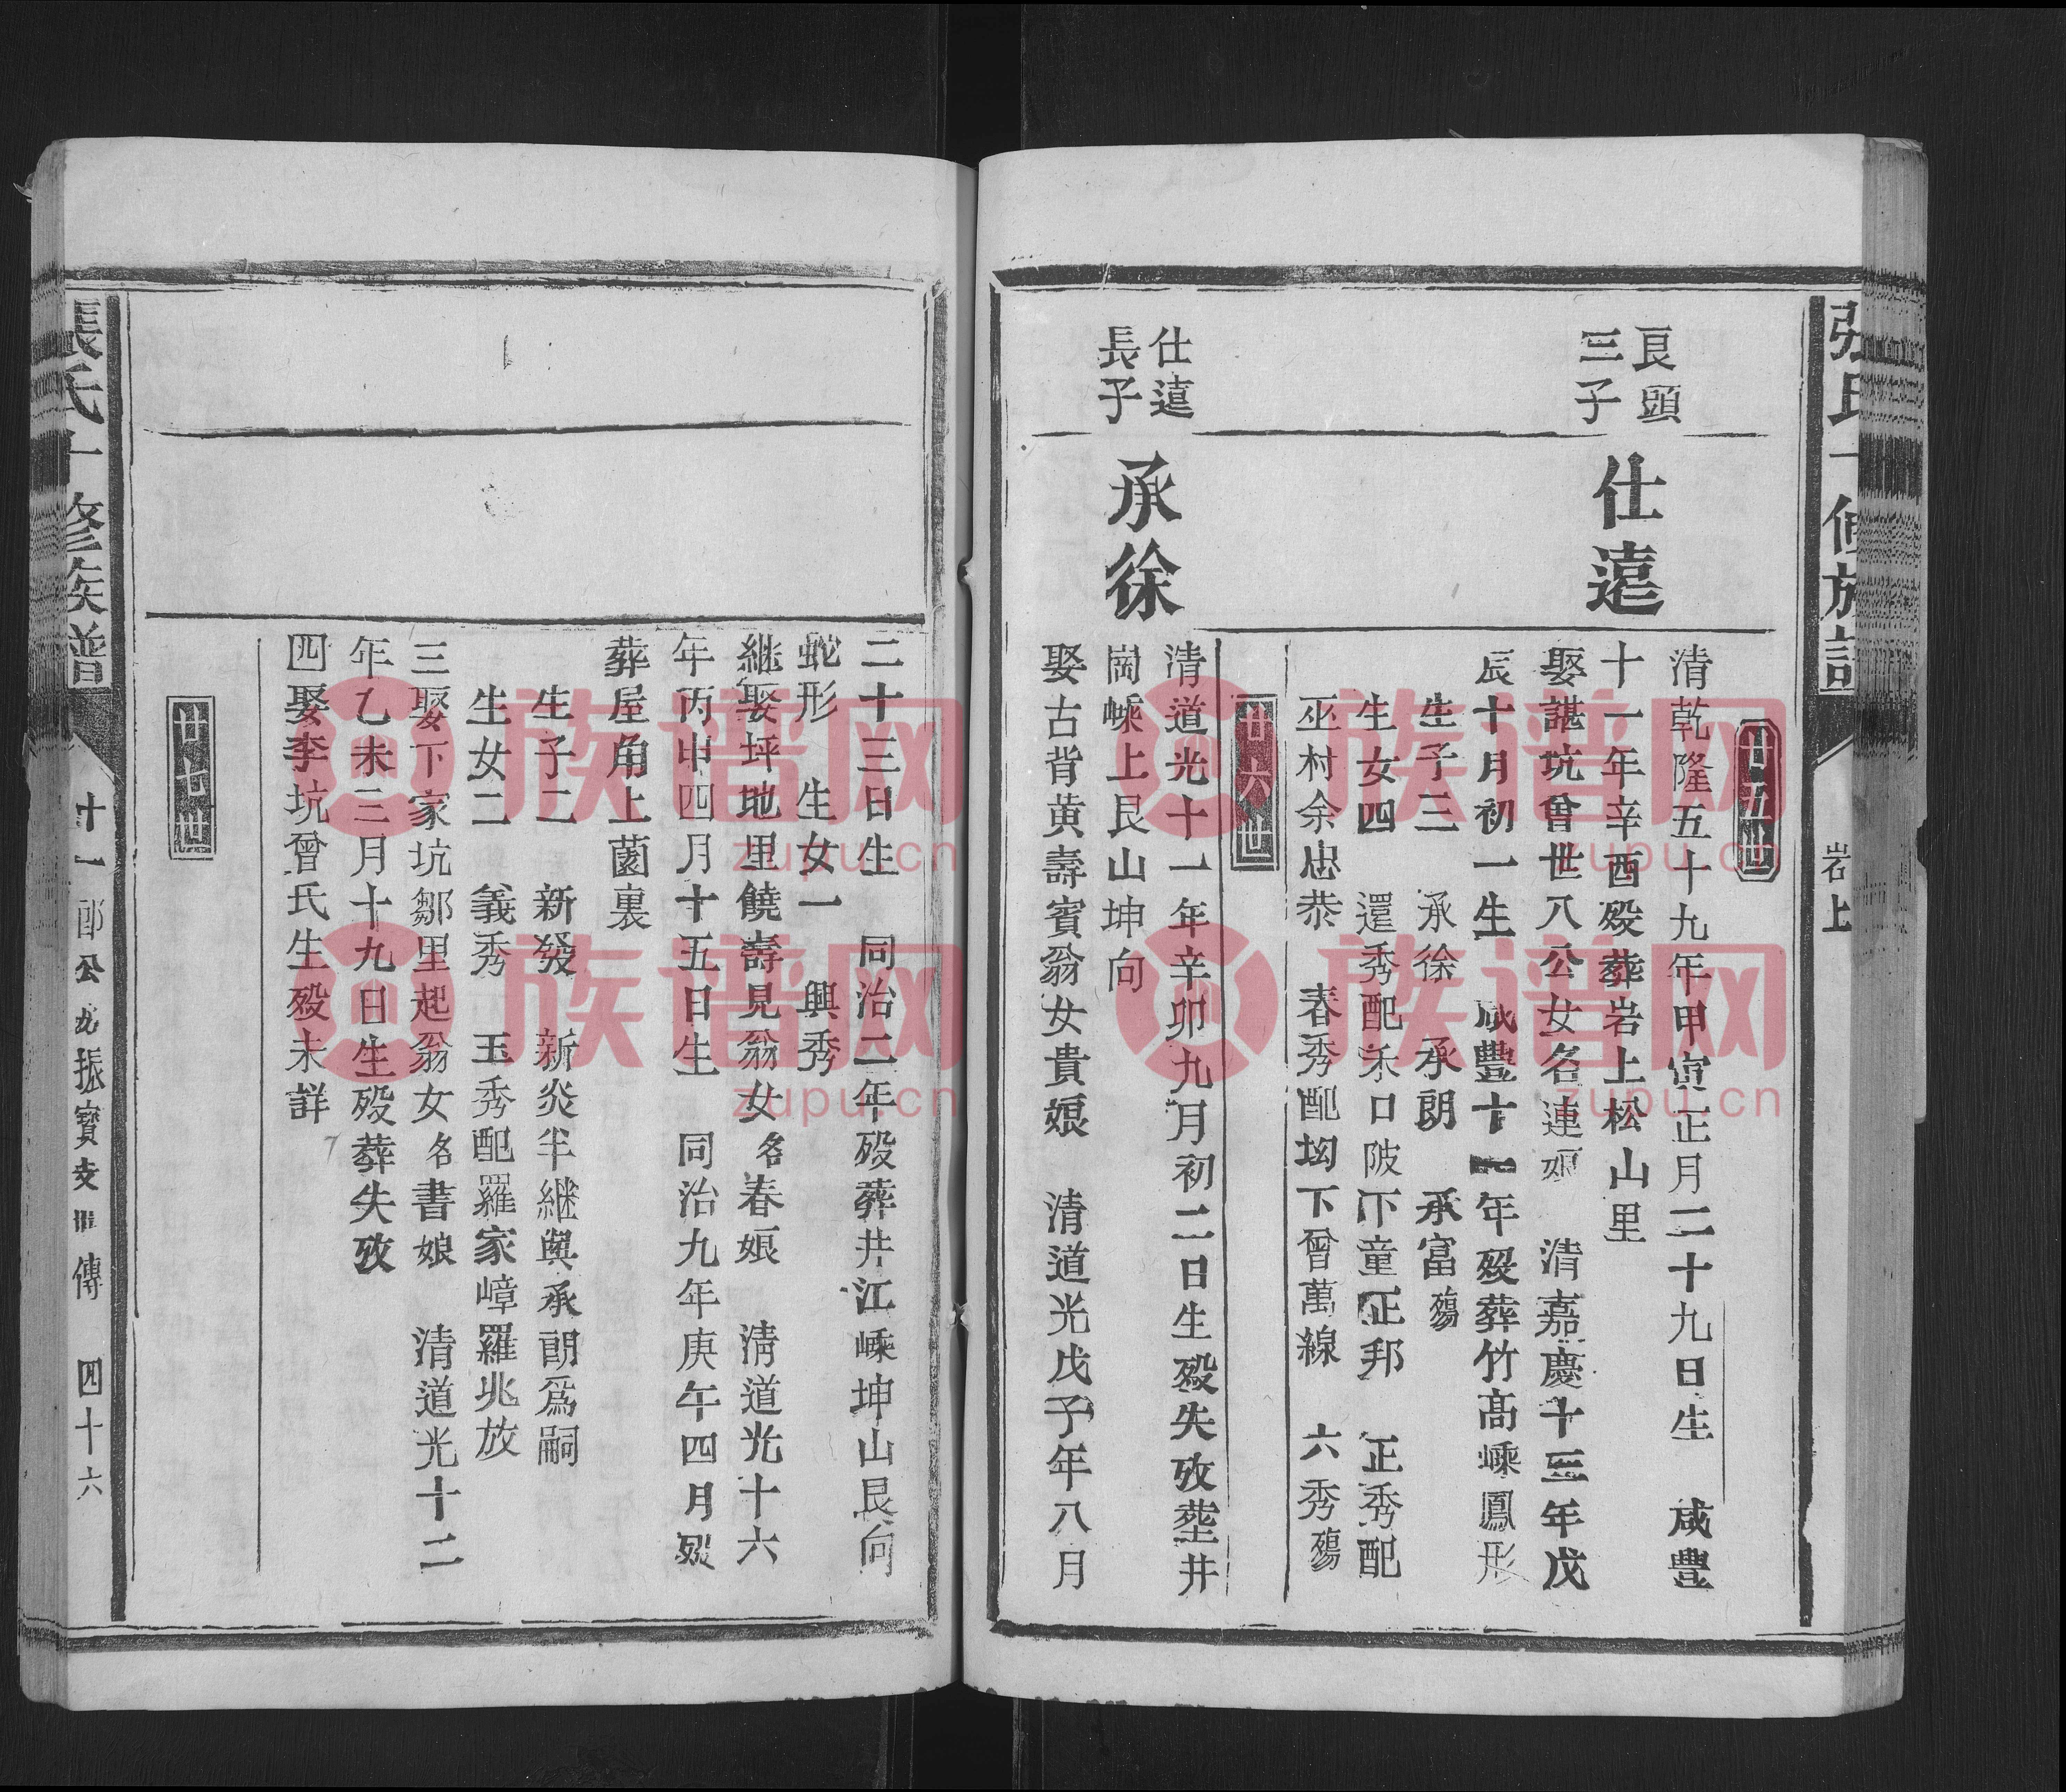 岩上
廿五世
良頭
三子
仕遠
清乾隆五十九年甲寅正月二十九日生 咸豐
十一年辛酉歿葬岩上松山里
娶諶坑曾世八公女名連娘 清嘉慶十三年戊
辰十月初一生 咸豐十一年歿葬竹高嵊鳳形
生子三 承徐 承朗 承富殤
生女四 還秀配禾口陂下童正邦 正秀配
巫村余忠恭 春秀配坳下曾萬線 六秀殤
廿六世
仕遠
長子
承徐
清道光十一年辛卯九月初二日生歿失攷塟井
崗嵊上艮山坤向
娶古背黄壽賓翁女貴娘 清道光戊子年八月
二十三日生 同治二年歿葬井江嵊坤山艮向
蛇形 生女一 興秀
継娶坪地里饒壽見翁女名春娘 清道光十六
年丙申四月十五日生 同治九年庚午四月歿
葬屋角上薗裏
生子二 新發 新炎半継與承朗爲嗣
生女二 義秀 玉秀配羅家嶂羅兆放
三娶下家坑鄒里起翁女名書娘 清道光十二
年乙未三月十九日生歿葬失攷
四娶李坑曾氏生歿未詳
廿七世
張氏十修族譜
十一郎公九振寶支世傳 四十六
族谱网
zupu.cn
族谱网
zupu.cn
族谱网
zupu.cn
族谱网
zupu.cn